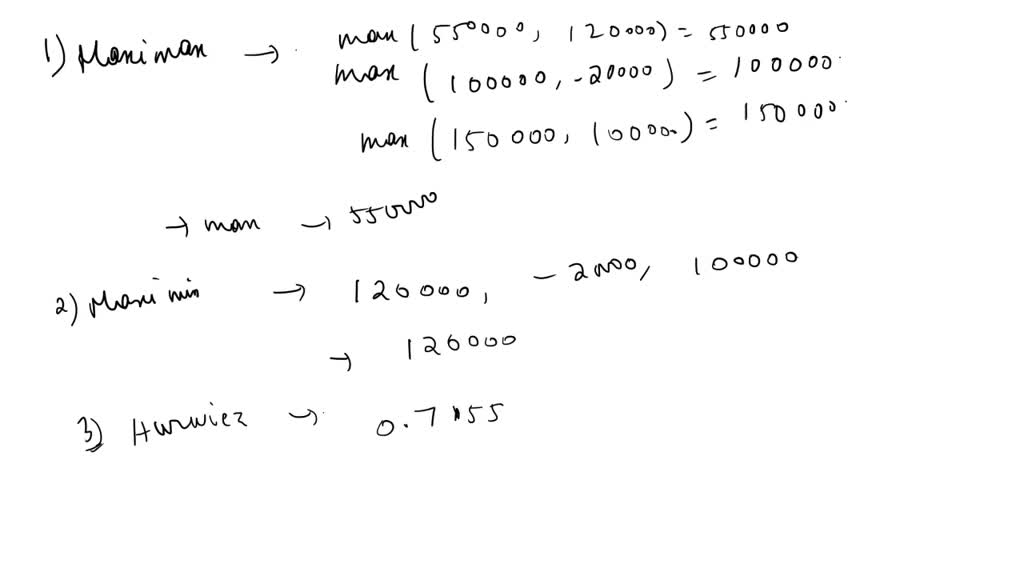 1) Maximax → max (550000, 120000) = 550000
max (100000, -20000) = 100000
max (150000, 100000) = 150000
→ max → 550000
2) Maximin → 120000, -20000, 100000
→ 120000
3) Hurwicz → 0.7 × 55